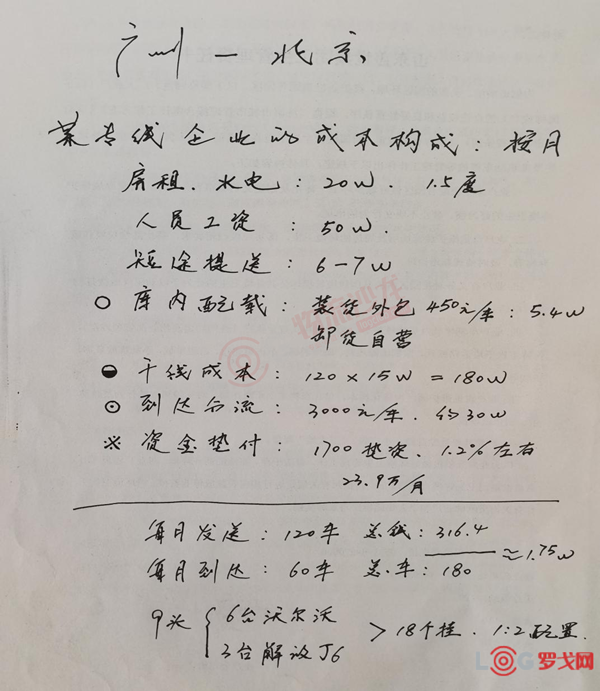 广州 — 北京
某专线企业的成本构成：按月
房租、水电：20W、1.5度
人员工资：50W.
短途提送：6-7W
○ 库内配载：装货外包 450元/车：5.4W
卸货自营
干线成本：120×15W=180W
⊙ 到达分流：3000元/车、约30W
※ 资金垫付：1700垫资、1.2%左右
23.9万/月
每月发送：120车 总钱：316.4 ≈1.75W
每月到达：60车 总车：180
9头 { 6台沃尔沃
3台解放J6 > 18个挂、1:2配置
LOG罗戈网